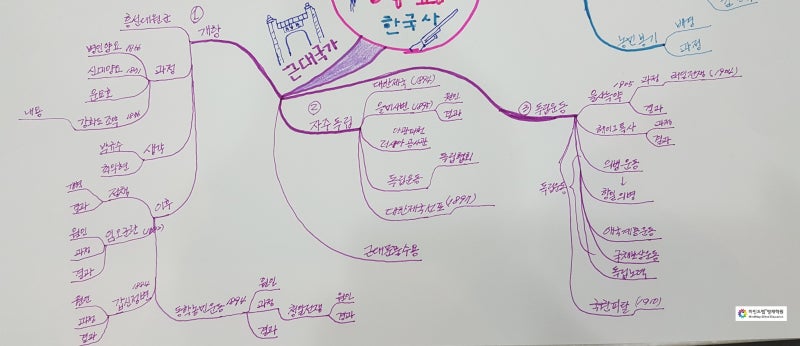 한국사
근대국가
①
개항
흥선대원군
과정
병인양요 1866
신미양요 1871
운요호
강화도조약 1876
내용
생각
박규수
최익현
이후
정책
개혁
결과
임오군란 (1882)
원인
과정
결과
갑신정변 1884
원인
과정
결과
동학농민운동 1894
원인
과정
결과
청일전쟁
원인
결과
②
자주독립
대한제국 (1894)
을미사변 (1895)
원인
결과
아관파천
러시아 공사관
독립운동
독립협회
대한제국선포 (1897)
근대문물수용
③ 독립운동
을사늑약
1905
과정
러일전쟁 (1904)
결과
헤이그특사
과정
결과
독립운동
의병운동
↓
항일의병
애국계몽운동
국채보상운동
독립노력
국권피탈 (1910)
농민봉기
배경
과정